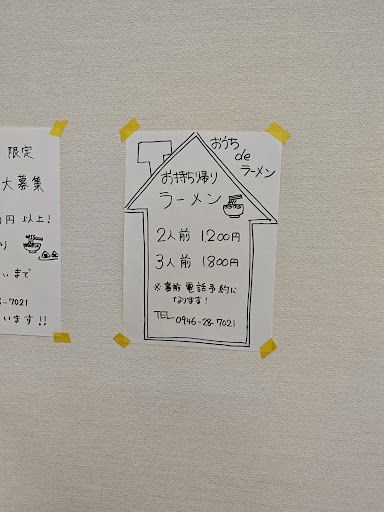 限定
大募集
円以上!
り
まで
-7021
います!!
おうち
de
ラーメン
お持ち帰り
ラーメン
2人前 1200円
3人前 1800円
※事前電話予約に
なります!
TEL 0946-28-7021